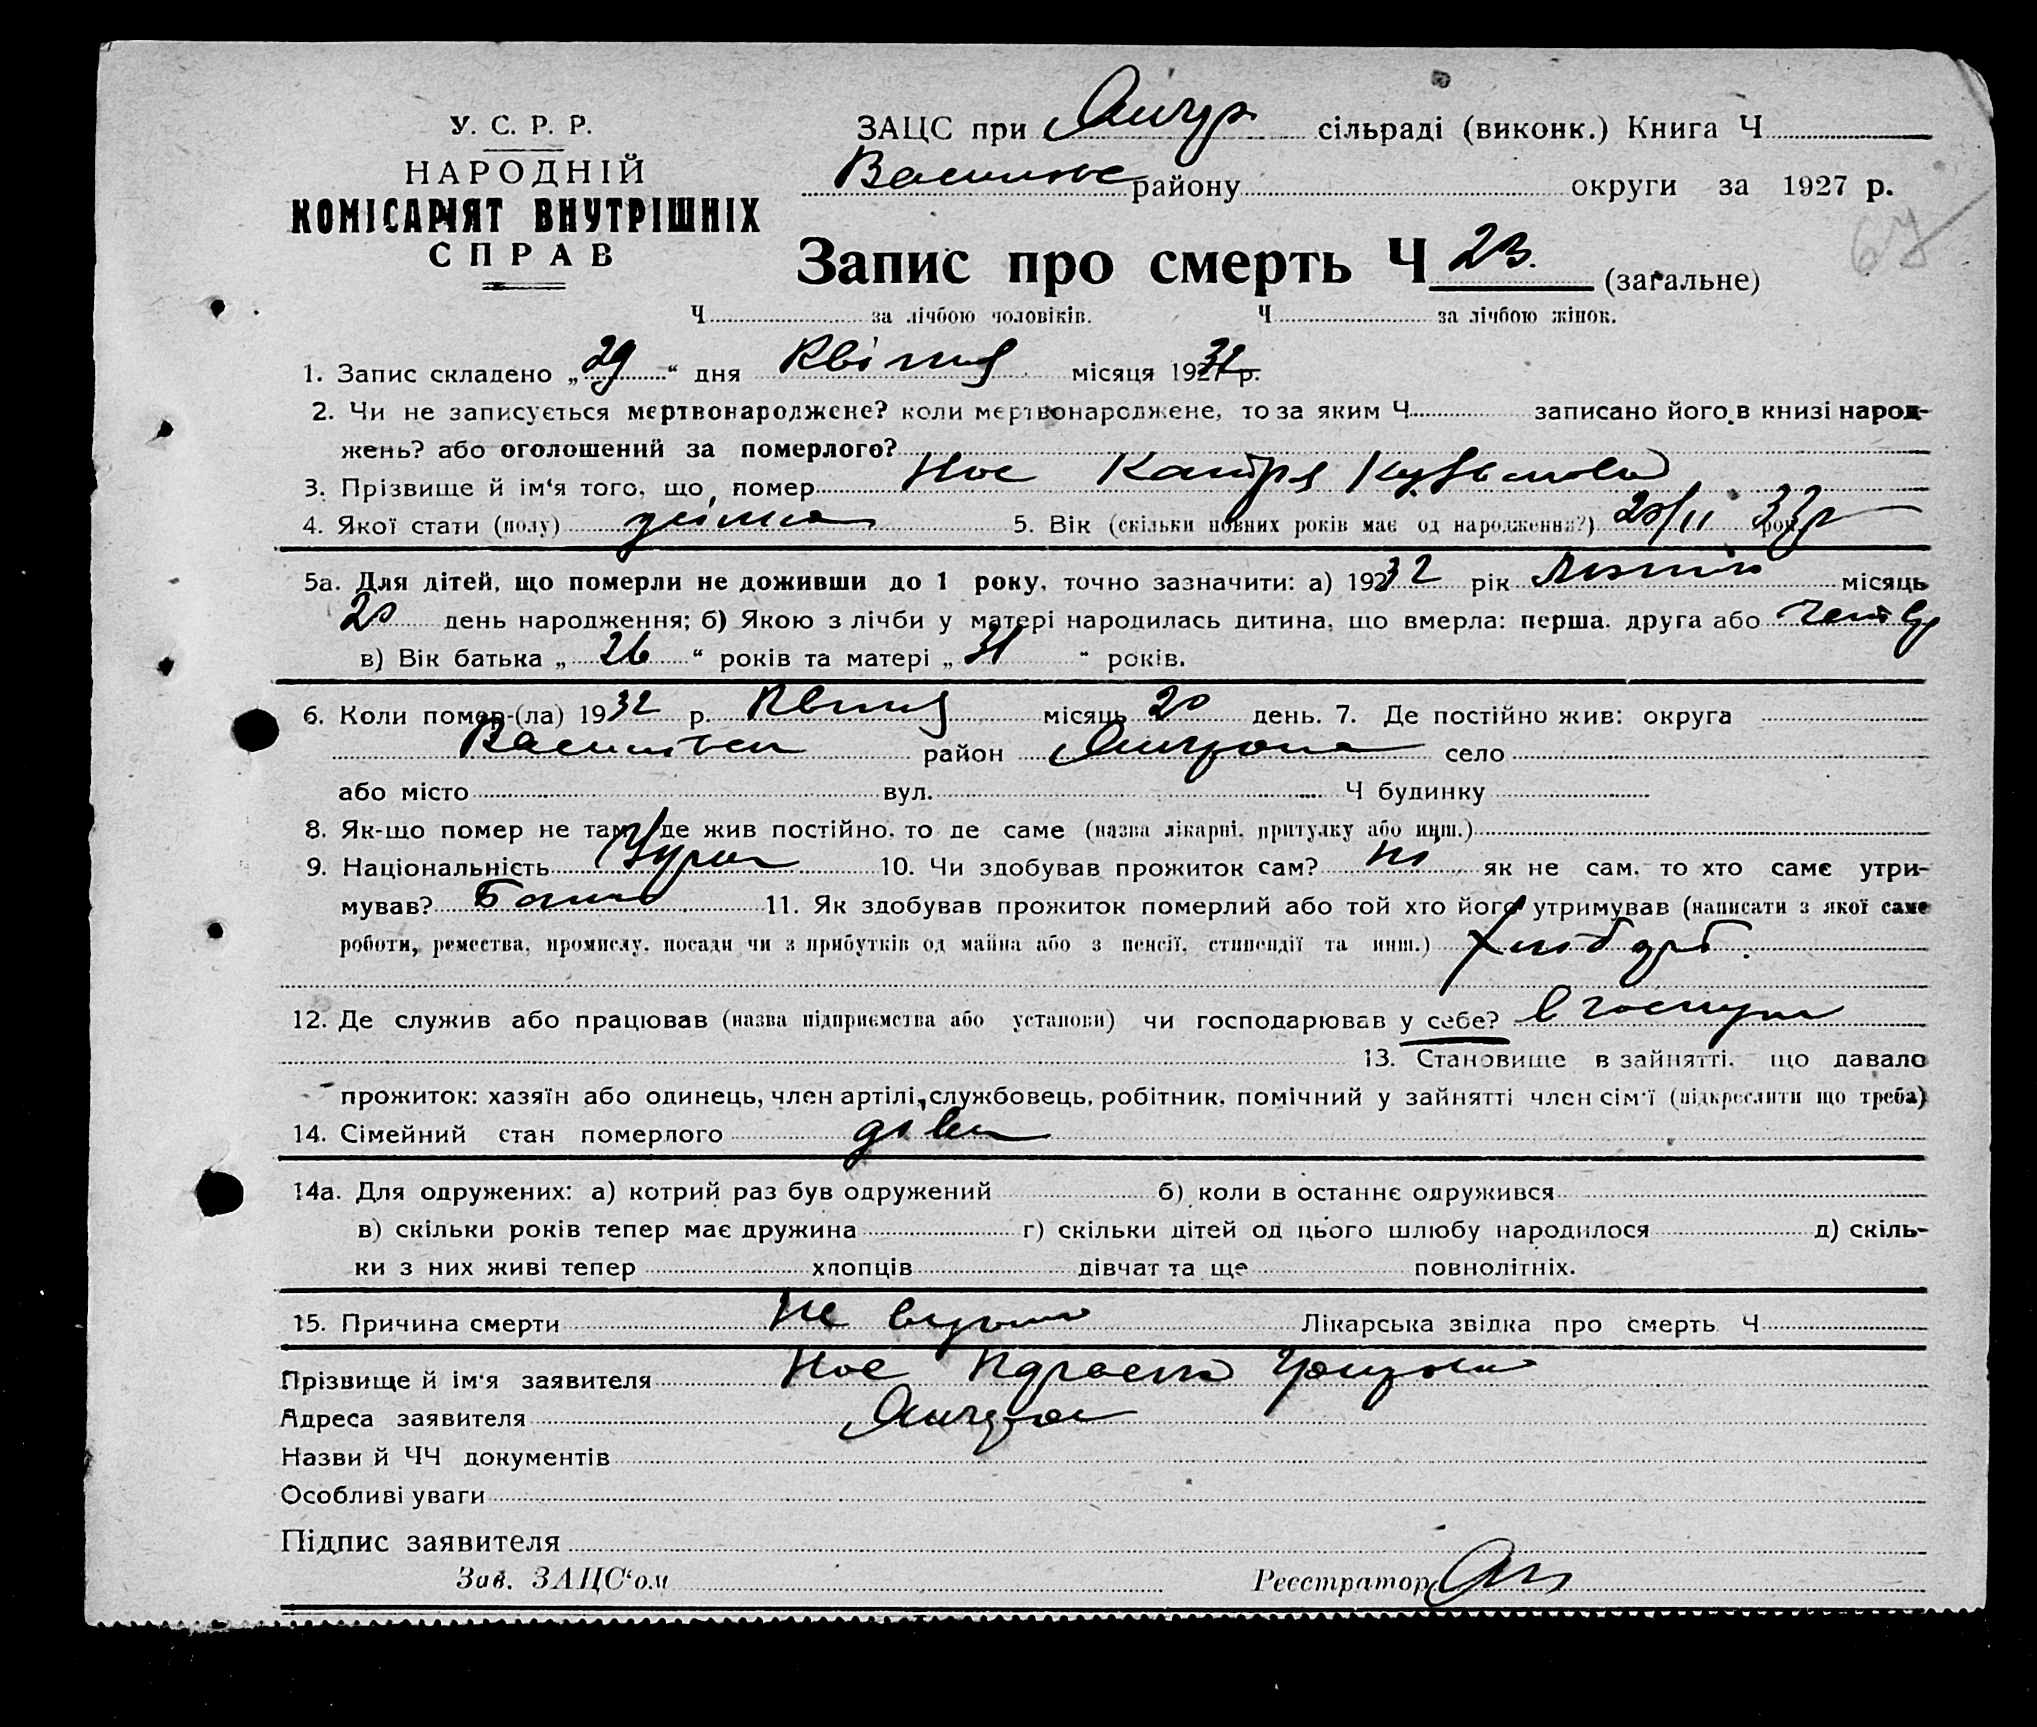 У. С. Р. Р.
НАРОДНІЙ
КОМІСАРІЯТ ВНУТРІШНІХ
СПРАВ
ЗАЦС при Янчур. сільраді (виконк.) Книга Ч
району округи за 1927 р.
67
Запис про смерть Ч 23. (загальне)
Ч за лічбою чоловіків. Ч за лічбою жінок.
1. Запис складено „29“ дня Квітня місяця 1932 р.
2. Чи не записується мертвонароджене? коли мертвонароджене, то за яким Ч записано його в книзі народ-
жень? або оголошений за померлого?
3. Прізвище й ім‘я того, що помер Нос Катря Кузьмовна
4. Якої стати (полу) 5. Вік (скільки повних років має од народження?) 20/II 32 р
5а. Для дітей, що померли не доживши до 1 року, точно зазначити: а) 1932 рік Лютий місяць
20 день народження; б) Якою з лічби у матері народилась дитина, що вмерла: перша, друга або
в) Вік батька „26“ років та матері „31“ років.
6. Коли помер-(ла) 1932 р. Квітня місяць 20 день. 7. Де постійно жив: округа
район село
або місто вул. Ч будинку
8. Як-що помер не там, де жив постійно, то де саме (назва лікарні, притулку або инш.)
9. Національність Украін 10. Чи здобував прожиток сам? Ні як не сам, то хто саме утри-
мував? Батько 11. Як здобував прожиток померлий або той хто його утримував (написати з якої саме
роботи, ремества, промислу, посади чи з прибутків од майна або з пенсії, стипендії та инш.) Хлібороб.
12. Де служив або працював (назва підприємства або установи) чи господарював у себе? в
13. Становище в зайнятті, що давало
прожиток: хазяїн або одинець, член артілі, службовець, робітник, помічний у зайнятті член сім‘ї (підкреслити що треба)
14. Сімейний стан померлого
14а. Для одружених: а) котрий раз був одружений б) коли в останнє одружився
в) скільки років тепер має дружина г) скільки дітей од цього шлюбу народилося д) скіль-
ки з них живі тепер хлопців дівчат та ще повнолітніх.
15. Причина смерти Не Лікарська звідка про смерть Ч
Прізвище й ім‘я заявителя Нос
Адреса заявителя
Назви й ЧЧ документів
Особливі уваги
Підпис заявителя
Зав. ЗАЦС‘ом Реєстратор